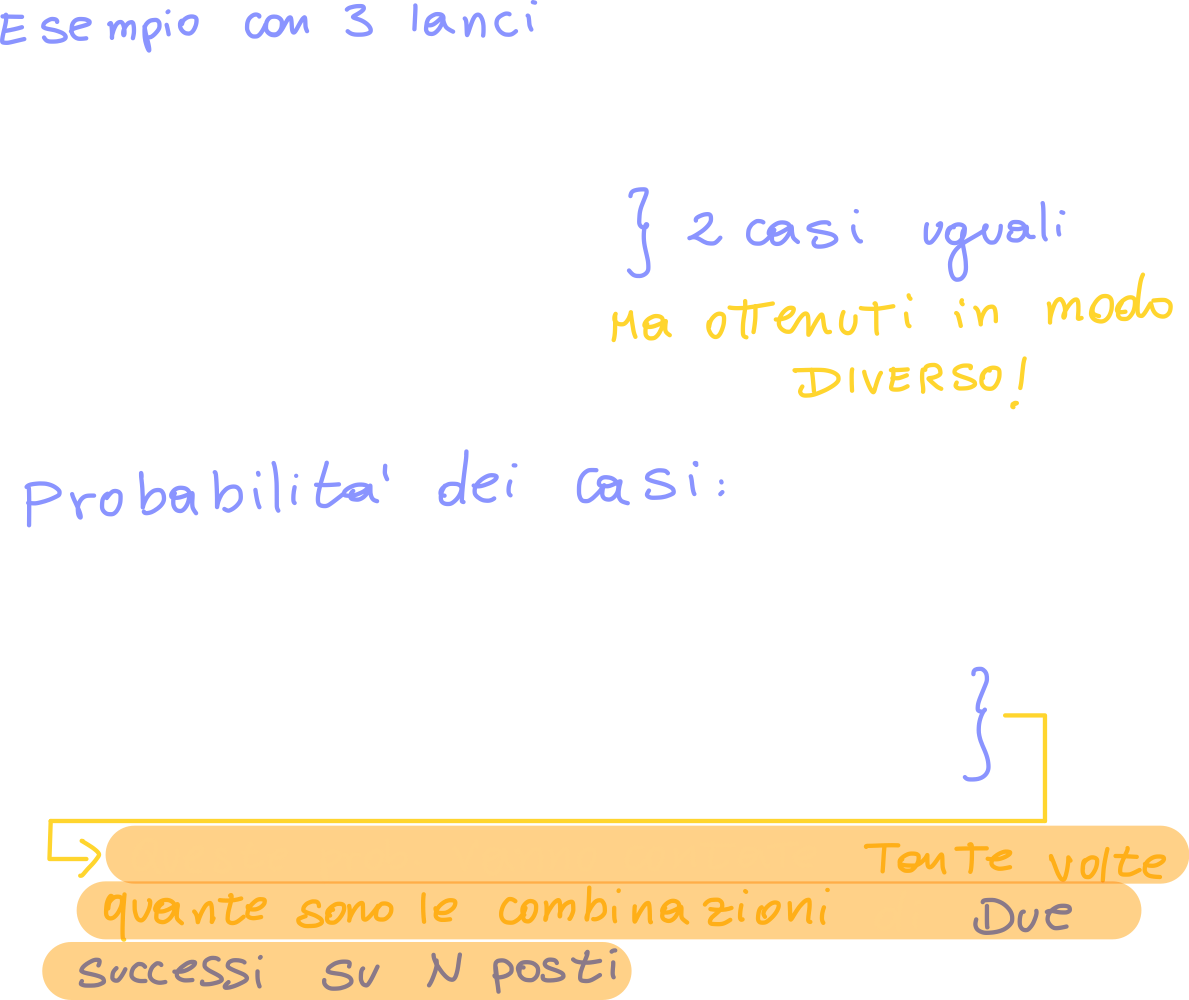 Esempio con 3 lanci
} 2 casi uguali
Ma ottenuti in modo
DIVERSO!
Probabilita' dei casi:
}
Tante volte
quante sono le combinazioni Due
successi su N posti